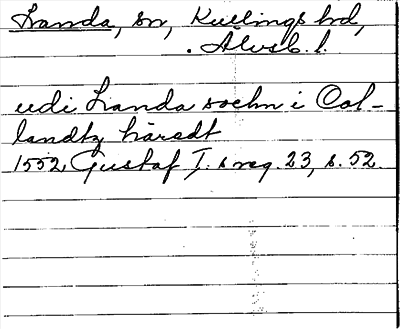 Landa, sn, Kullings hd,
Älvsb. l.
udi Landa sochn i Col-
landtz häredt
1552, Gustaf I:s reg. 23, s. 52.